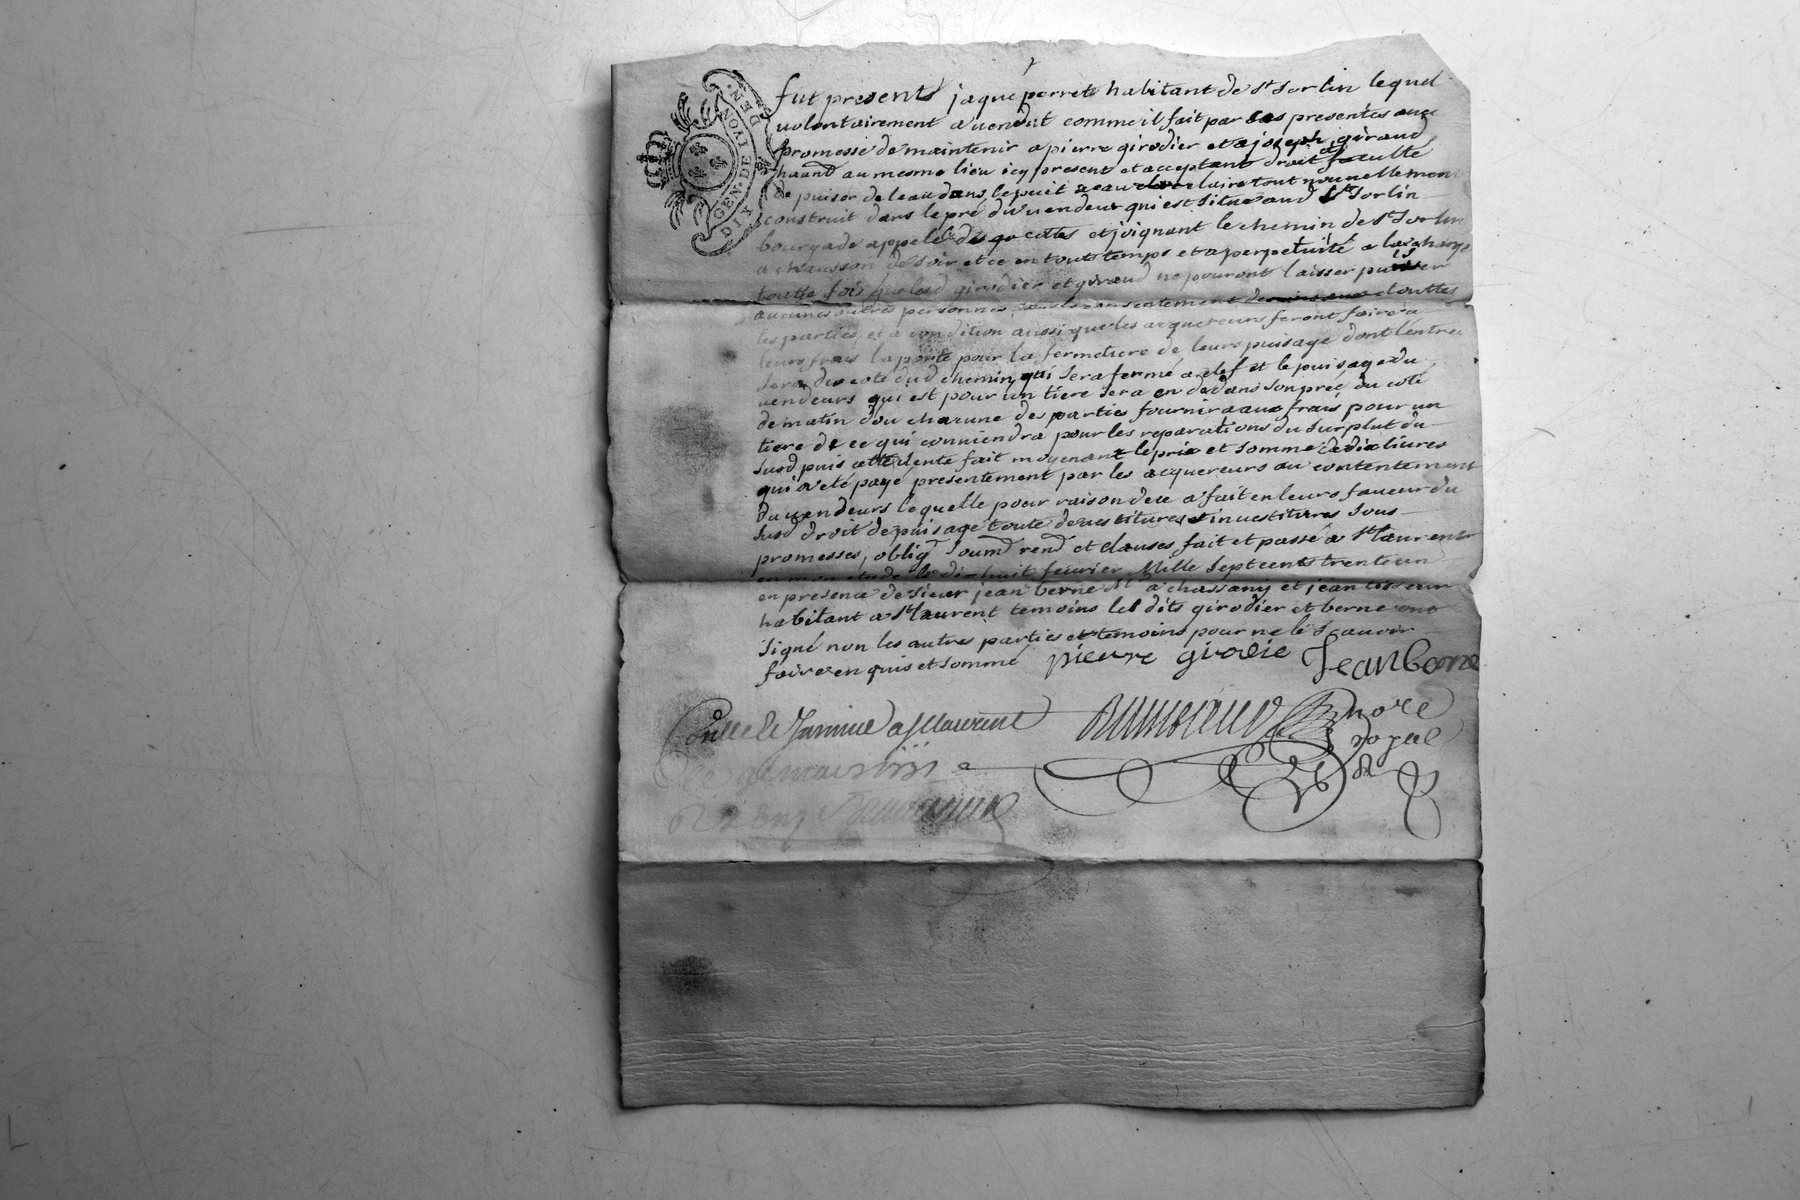 DIX DEN. GEN. DE LYON
fut present jaque perret habitant de st sorlin lequel
volontairement a vendut comme il fait par ses presentes avec
promesse de maintenir a pierre girodier et a joseph giraud
habitant au mesme lieu icy present et acceptant droit et faculté
de puiser de leau dans le puit a eau claire tout nouvellement
construit dans le pré du vendeur qui est situé aud st sorlin
bourgade appelé des gocettes et joignant le chemin de st sorlin
a chausson de soir et ce en touts temps et a perpetuité a la charge
toutte fois que led girodier et giraud ne pouront laisser puiser
aucunes autres personnes sans le consentement de touttes
les parties, et a condition aussi que les acquereurs feront faire a
leurs frais la porte pour la fermeture de leurs puisage dont lentree
sera du coté dud chemin, qui sera fermé a clef et le puisage du
vendeurs qui est pour un tiere sera en dedans son preé du coté
de matin dou chacune des parties fournira aux frais pour un
tiere de ce qui conviendra pour les reparations du surplut du
susd puis cette vente fait moyenant le prix et somme de dix livres
qui a eté payé presentement par les acquereurs au contentement
du vendeurs lequelle pour raison de ce a fait en leurs faveur du
susd droit de puisage toute devestitures et investitures sous
promesses, oblign soumd rend et clauses fait et passé a st laurent
en mon etude le dix huit fevrier Mille sept cents trente un
en presence de sieur jean berne Mr a chassany et jean
habitant a st laurent temoins les dits girodier et berne ont
signé non les autres parties et temoins pour ne le scavoir
faire enquis et sommé pierre girodie Jean Berne
Conllé & Insinué a St Laurent
nore
royal